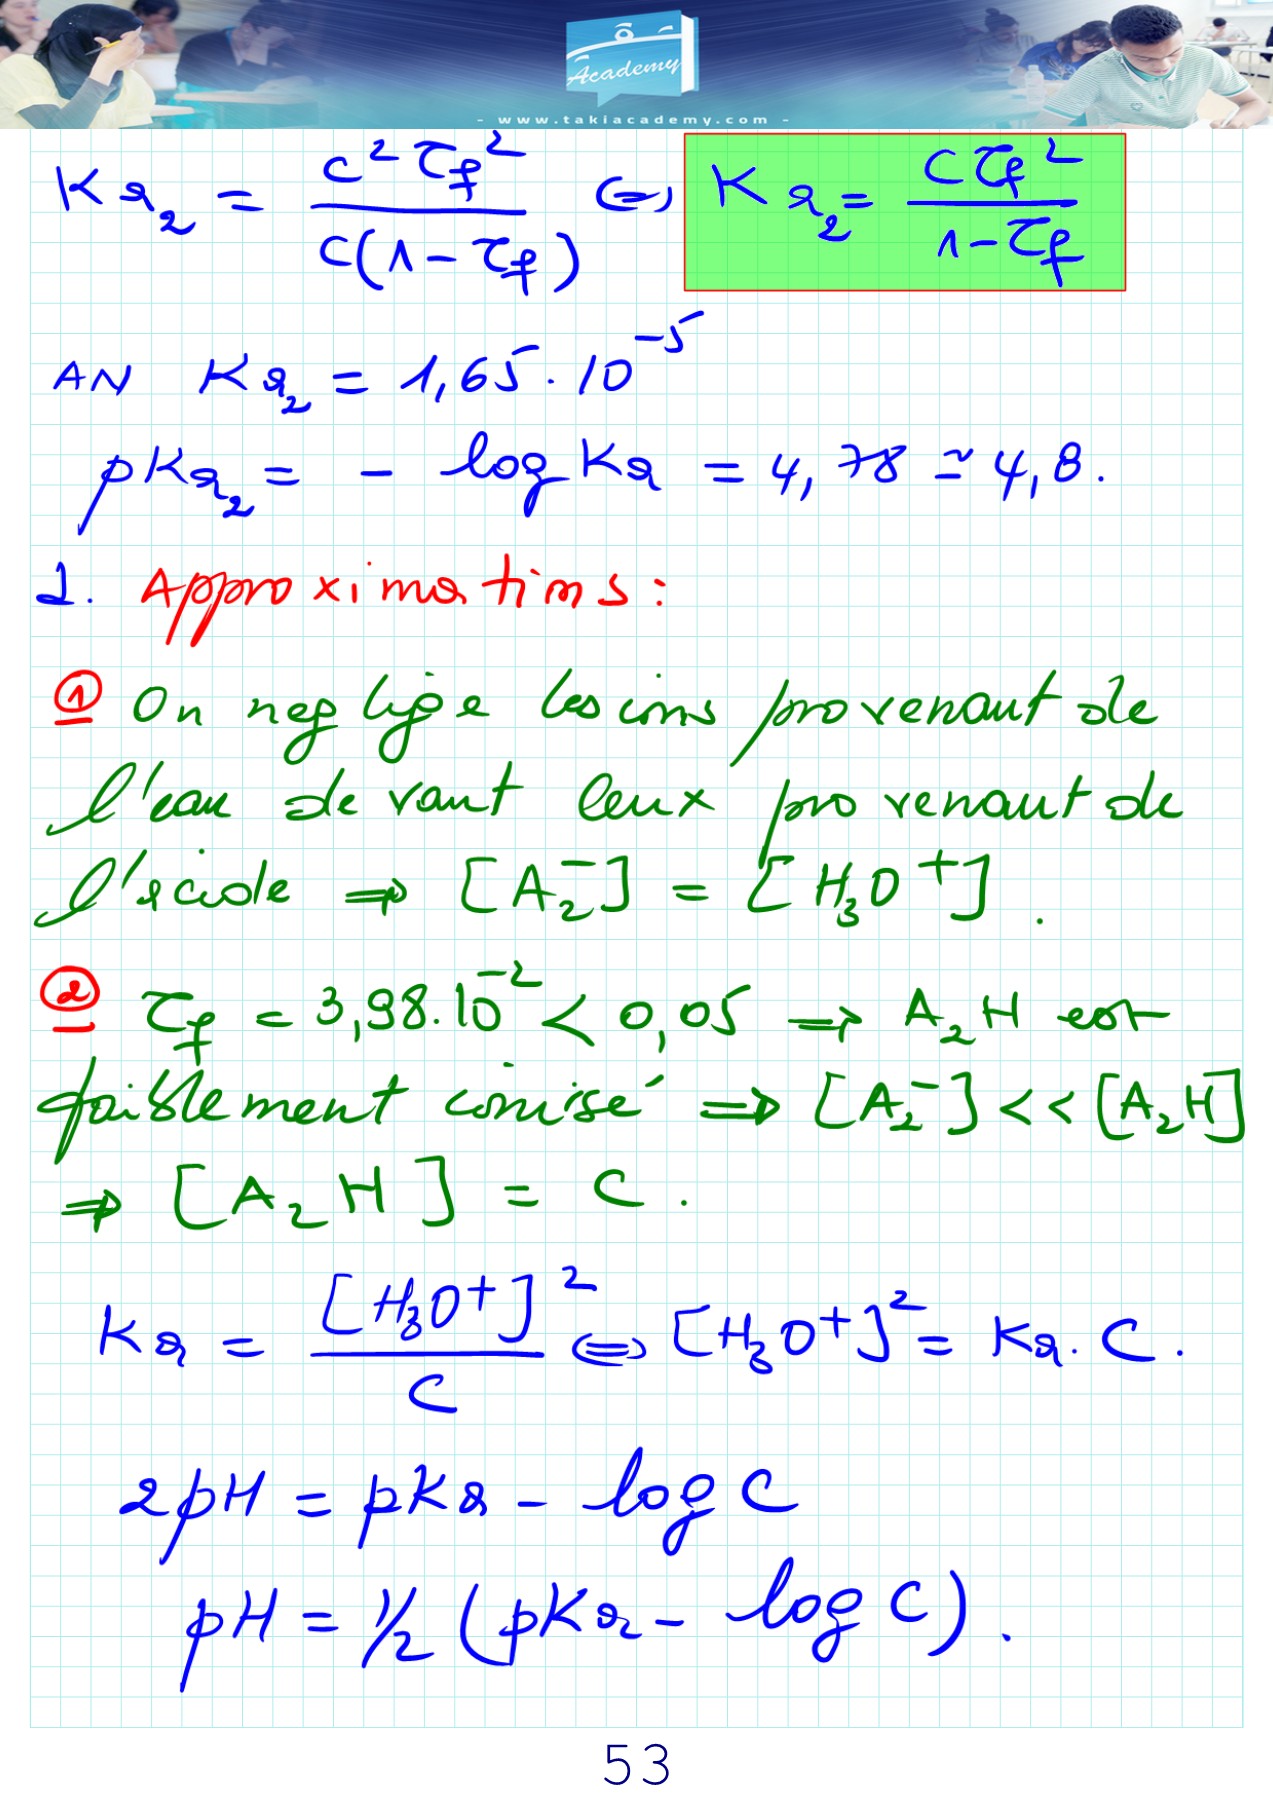 Academy
- www.takiacademy.com -
Ka₂ = c² τf² / c(1 - τf) ⇔ Ka₂ = C τf² / 1 - τf
AN Ka₂ = 1,65 . 10⁻⁵
pKa₂ = - log Ka = 4,78 ≃ 4,8 .
2. Approximations :
① On neglige les ions provenant de
l'eau devant ceux provenant de
l'acide ⇒ [A₂⁻] = [H₃O⁺] .
② τf = 3,98.10⁻² < 0,05 ⇒ A₂H est
faiblement ionisé ⇒ [A₂⁻] << [A₂H]
⇒ [A₂H] = C .
Ka = [H₃O⁺]² / C ⇔ [H₃O⁺]² = Ka . C .
2pH = pKa - log C
pH = 1/2 (pKa - log C) .
53